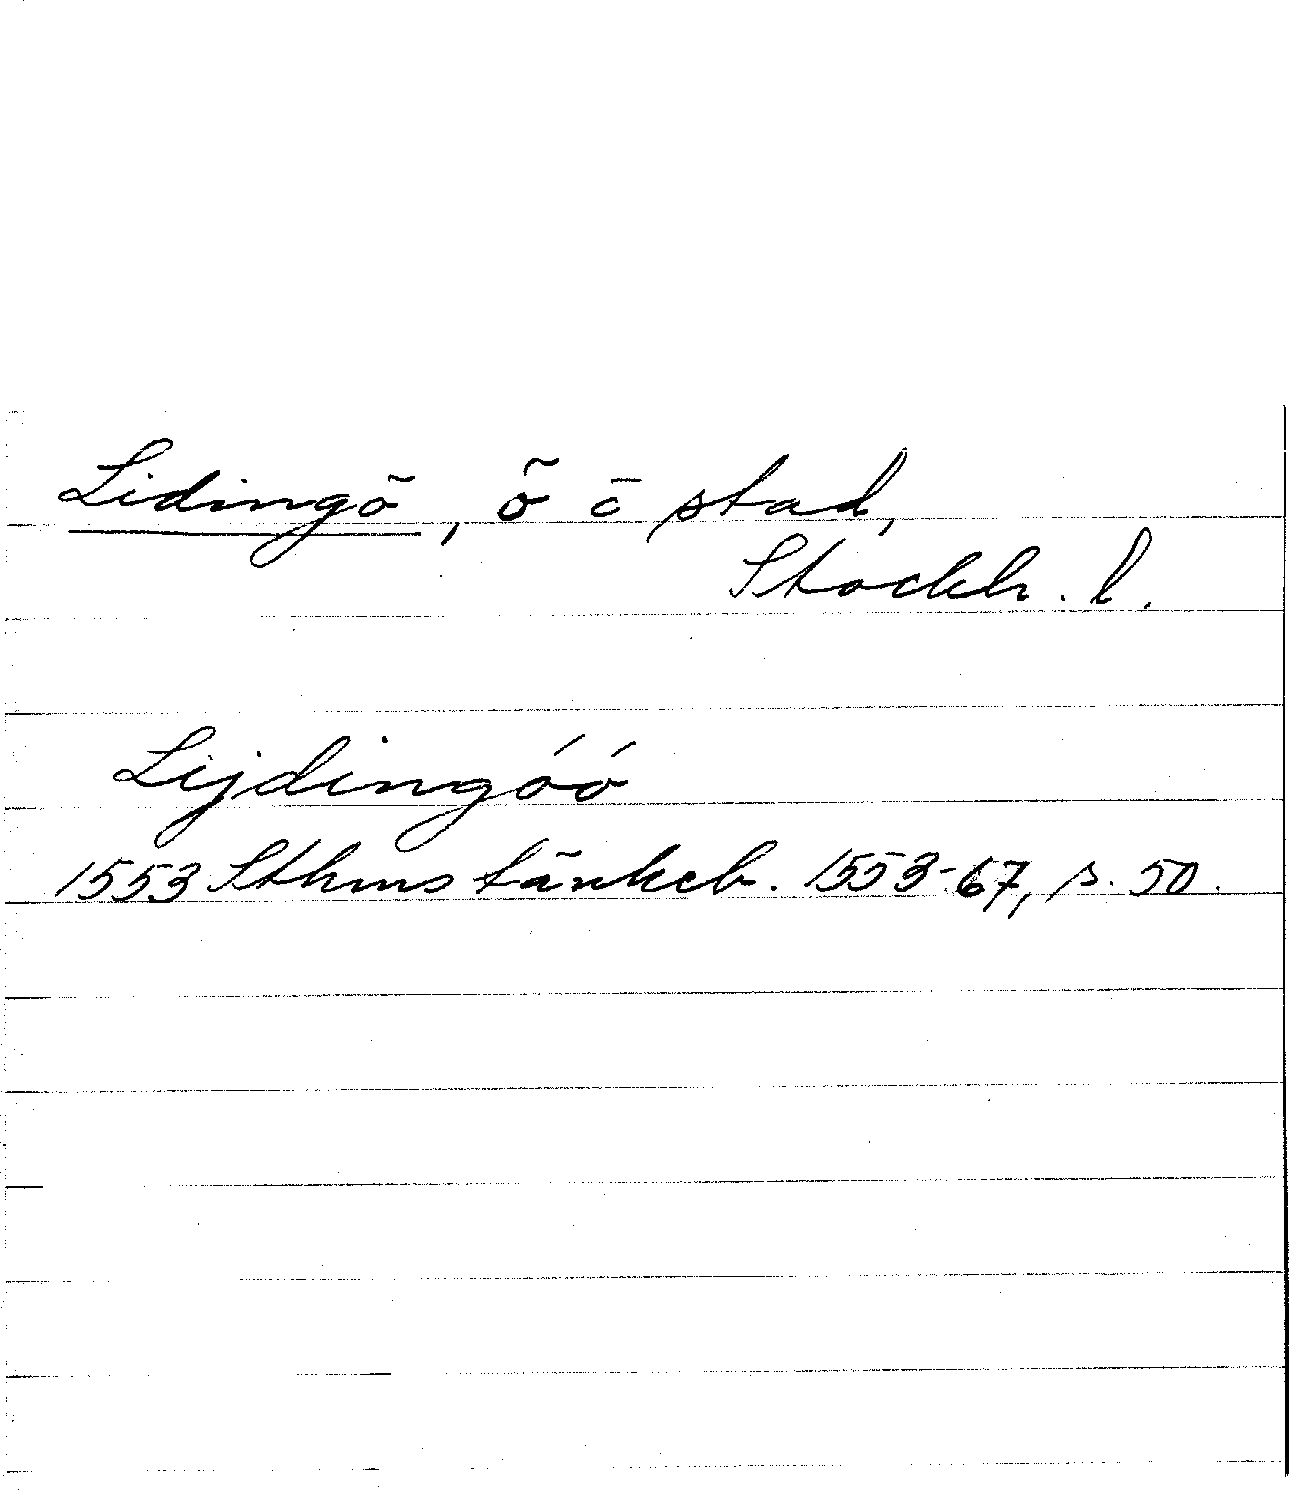 Lidingö, ö o stad,
Stockh. l.
Lijdingóó
1553 Sthms tänkeb. 1553-67, s. 50.